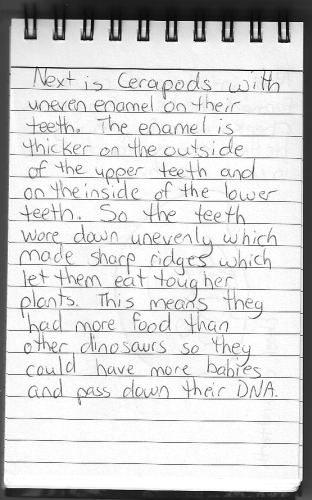 Next is Cerapods with
uneven enamel on their
teeth. The enamel is
thicker on the outside
of the upper teeth and
on the inside of the lower
teeth. So the teeth
wore down unevenly which
made sharp ridges which
let them eat tougher
plants. This means they
had more food than
other dinosaurs so they
could have more babies
and pass down their DNA.